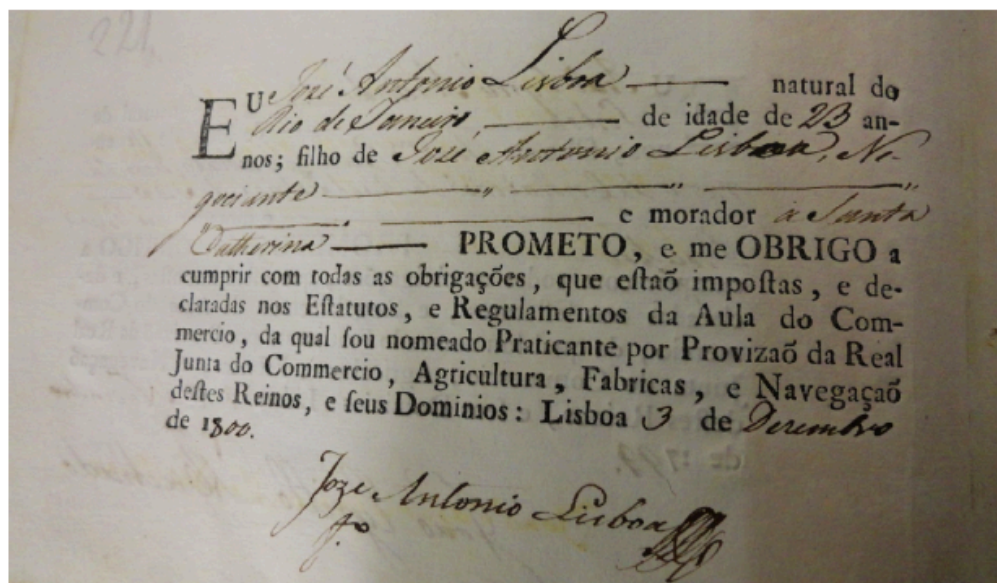 221
EU José Antonio Lisboa natural do
Rio de Janeiro, de idade de 23 an-
nos; filho de José Antonio Lisboa, Ne-
gociante
e morador á Santa
Catherina PROMETO, e me OBRIGO a
cumprir com todas as obrigações, que eſtaõ impoſtas, e de-
claradas nos Eſtatutos, e Regulamentos da Aula do Com-
mercio, da qual ſou nomeado Praticante por Provizaõ da Real
Junta do Commercio, Agricultura, Fabricas, e Navegaçaõ
deſtes Reinos, e ſeus Dominios: Lisboa 3 de Dezembro
de 1800.
Joze Antonio Lisboa